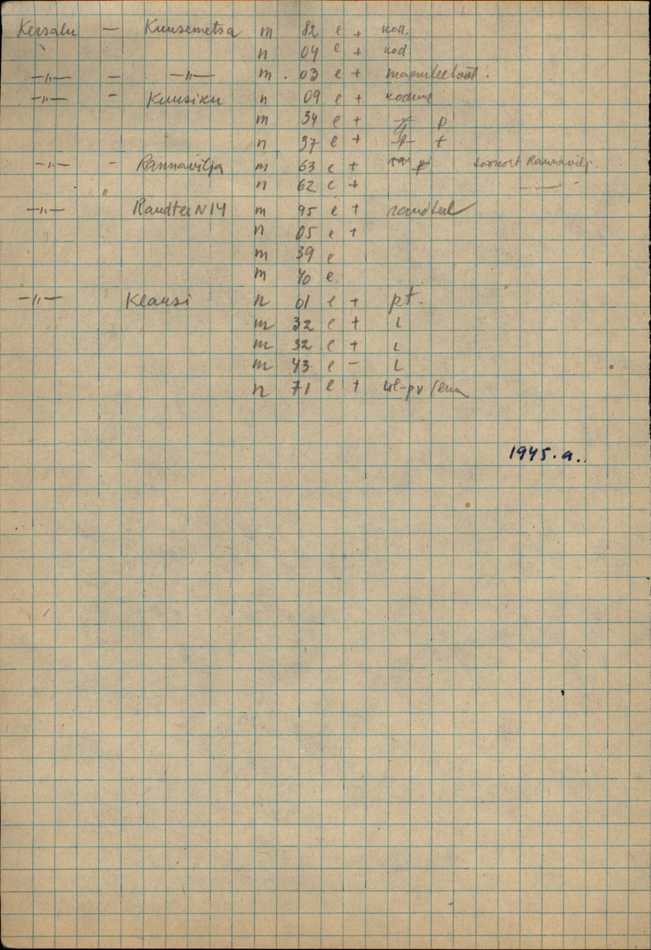 Kersalu — Kuusemetsa m 82 e + kod.
n 04 e + kod
—"— – —"— m. 03 e +
—"— – Kuusiku n 09 e + kodune
m 34 e + —"— p
n 37 e + —"— t
—"— – Rannavilja m 63 e + Rannavilj.
n 62 e + —"—
—"— Raudtee N 14 m 95 e + raudteel
n 05 e +
m 39 e
m 40 e.
—"— Klausi n 01 e + pt.
m 32 e + L
m 32 e + L
m 43 e – L
n 71 e +
1945. a.